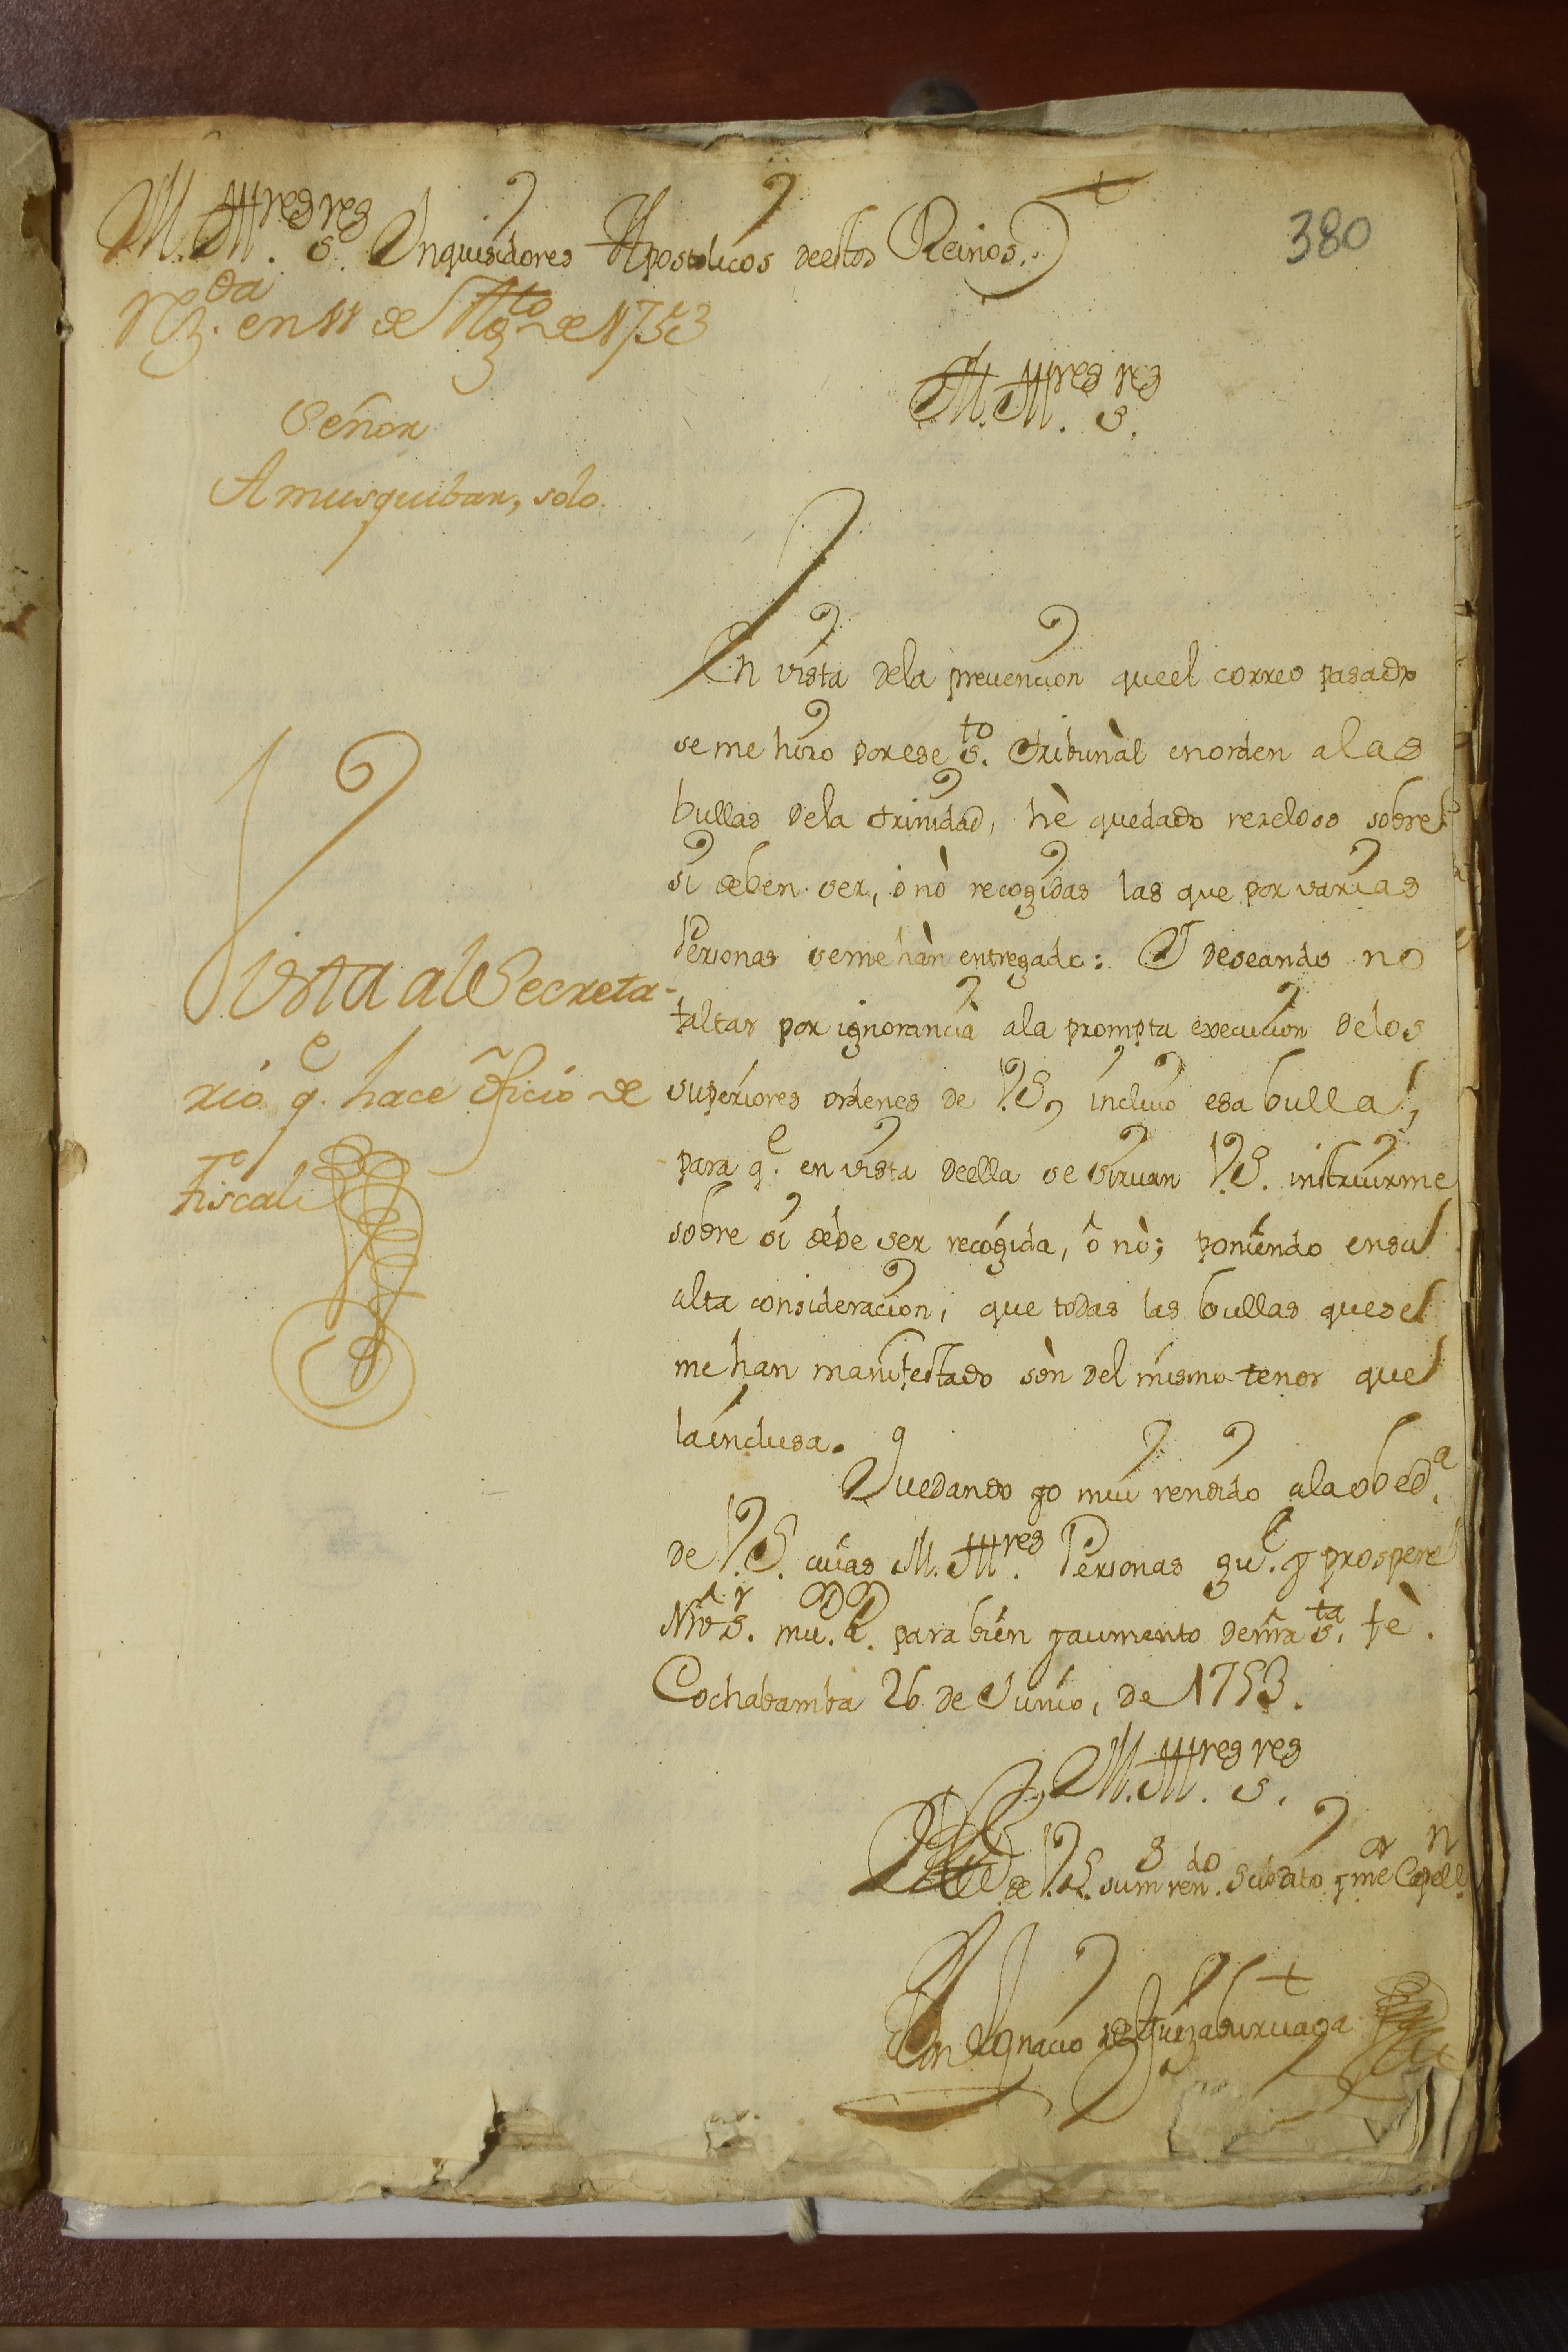 M. Ill.res S.res Inquisidores Apostolicos deestos Reinos.
380
Rz.da en 11 de Ag.to de 1753
M. Ill.res S.res
Señor
Amusquibar, solo.
En vista dela prevencion queel correo pasado
seme hizo porese S.to Tribunàl enorden alas
bullas dela trinidad, hè quedado rezeloso sobre
si deben ser, ò nò recogidas las que por varias
Personas seme hàn entregado: Y deseando no
faltar por ignorancia ala prompta execucion delos
superiores ordenes de V.S, incluio esa bulla,
para q.e en vista deella se sirvan V.S. instruirme
sobre si debe ser recogida, ô nò; poniendo ensu
alta consideracion, que todas las bullas quese
me han manifestado sòn del mismo tenor que
lainclusa.
Vista al Secreta-
rio q.e hace oficio de
Fiscal
Quedando yo mui rendido ala obed.a
de V.S. cuias M. Ill.res Personas gu.e y prospere
Nrô S.r mu. a. para bien y aumento denrâ S.ta fè.
Cochabamba 26 de Junio, de 1753.
M. Ill.res S.res
de V.S. su m ren.do Subdito y mr Capell.n
Don Ignacio de